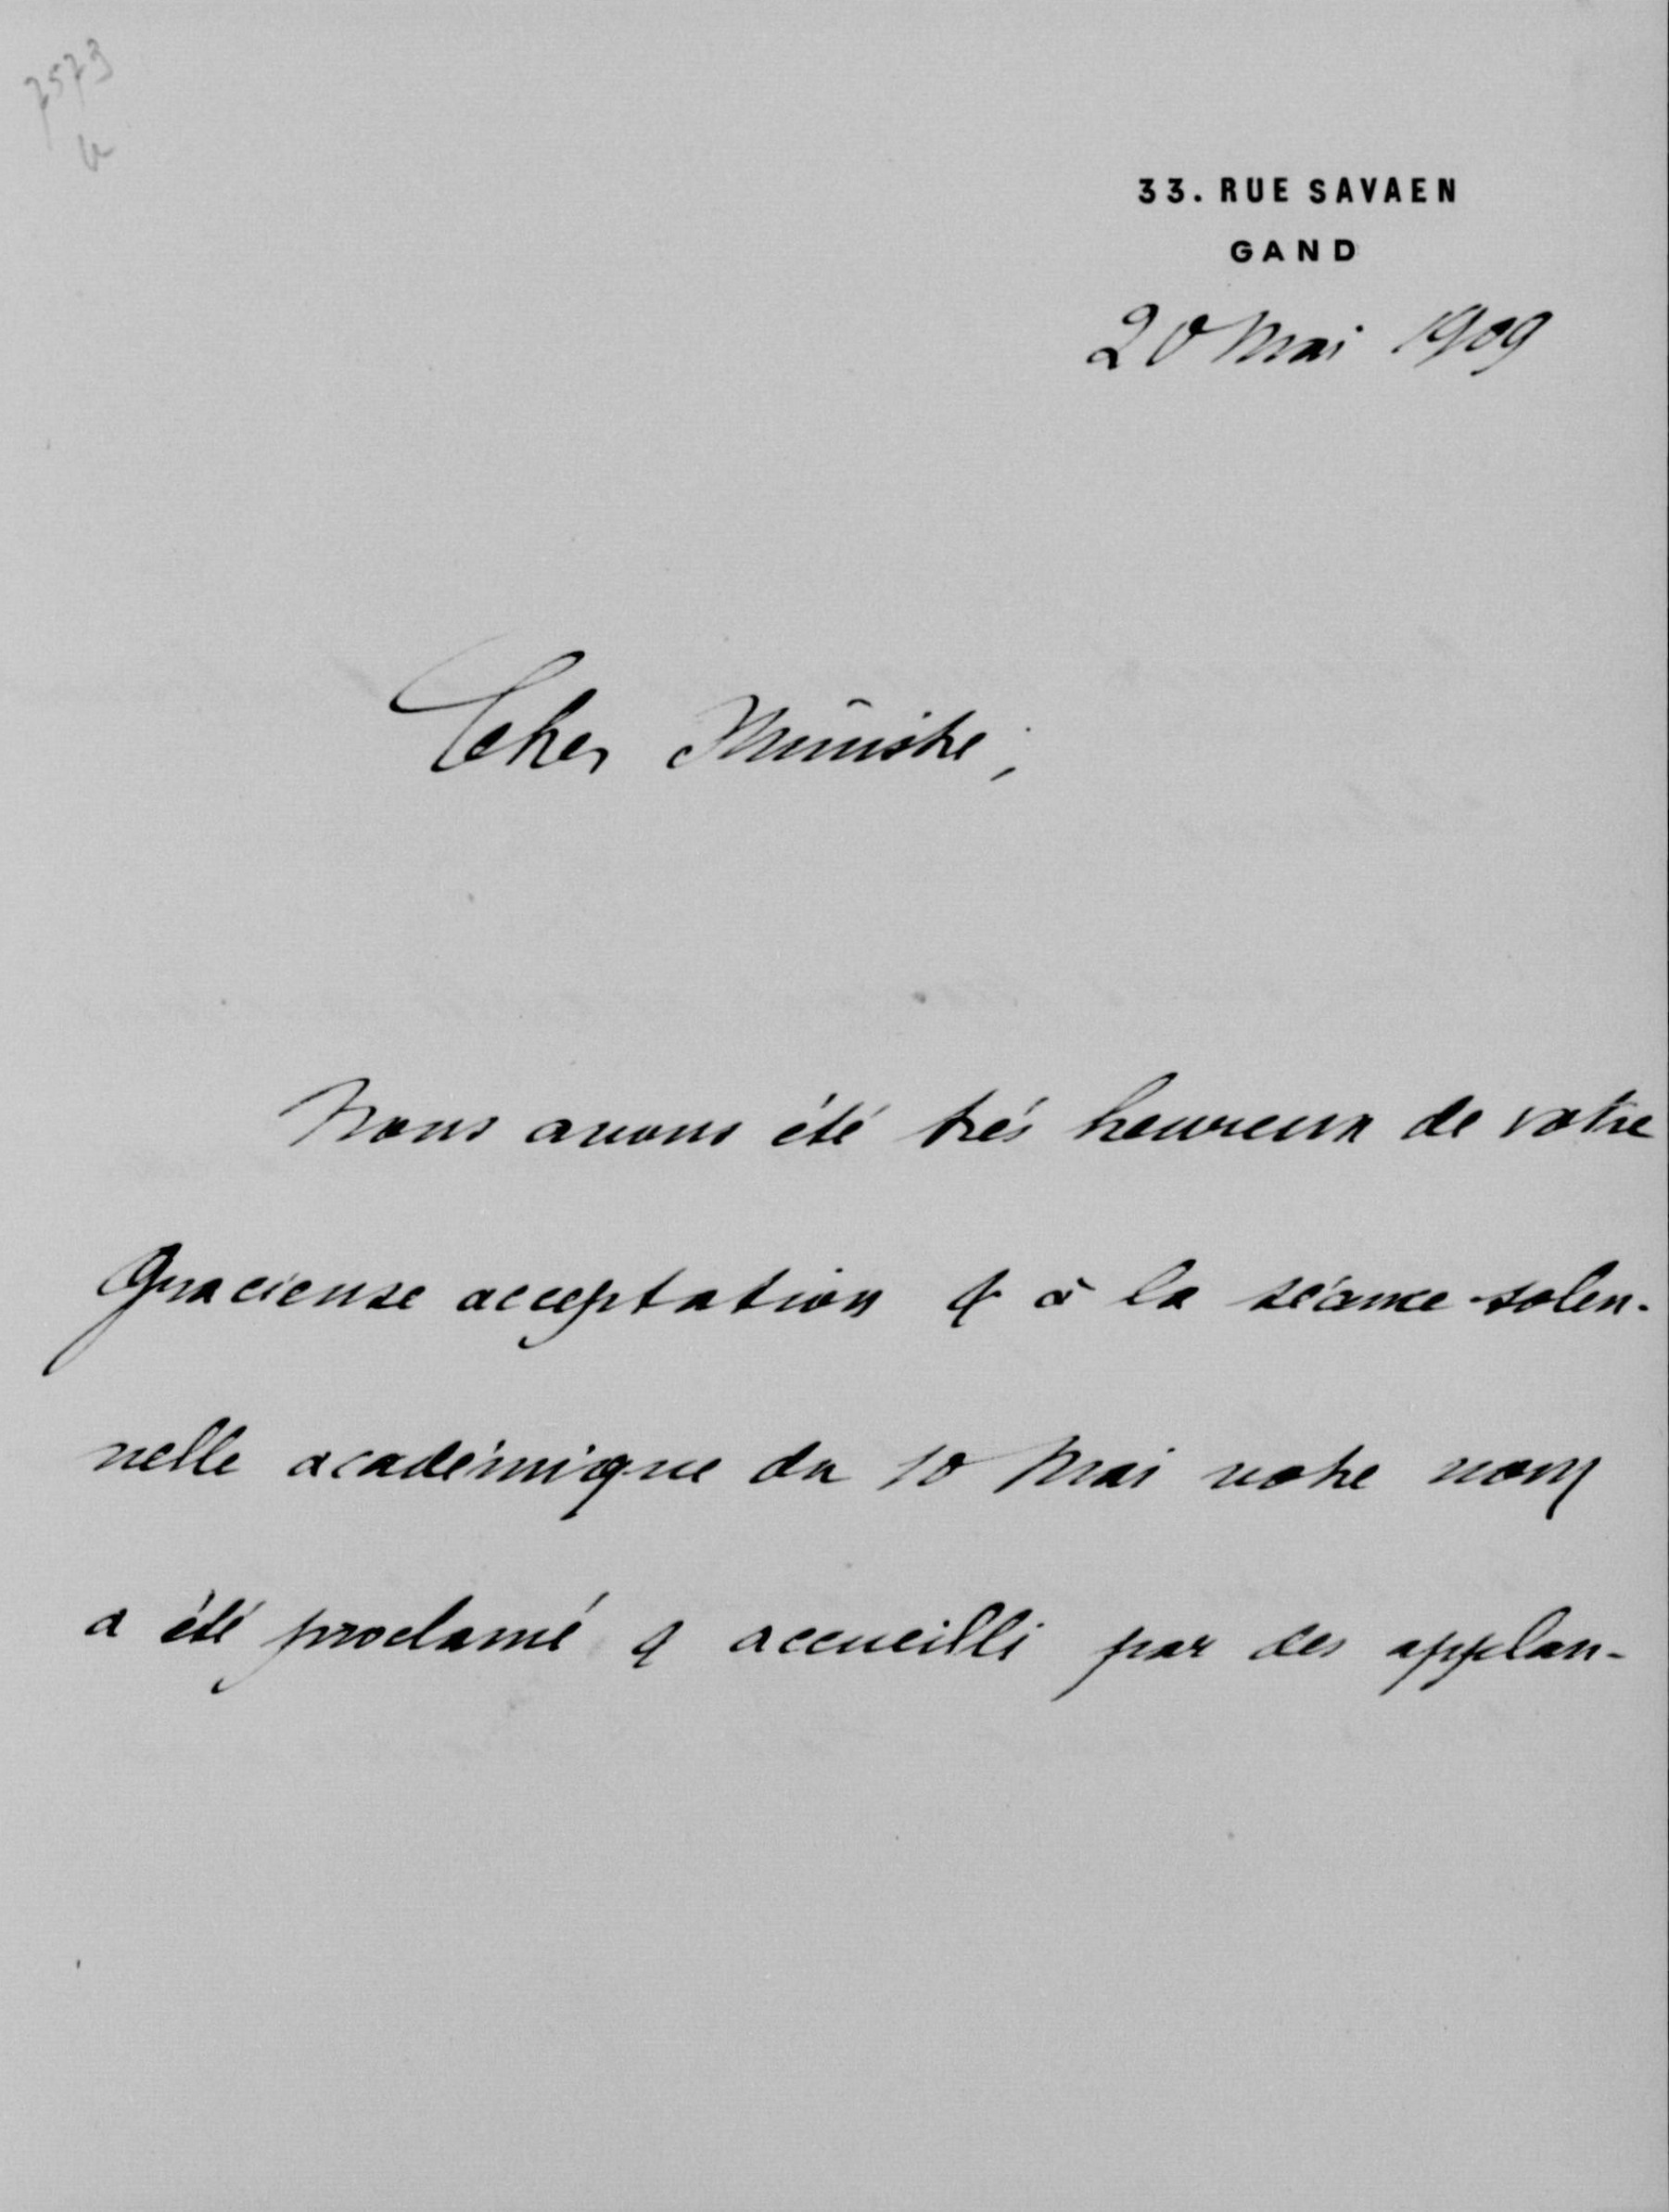 7573
33. RUE SAVAEN
GAND
20 Mai 1909
Cher Ministre,
Nous avons été très heureux de votre
Gracieuse acceptation & à la séance solen-
nelle académique du 10 Mai votre nom
a été proclamé & accueilli par des applau-